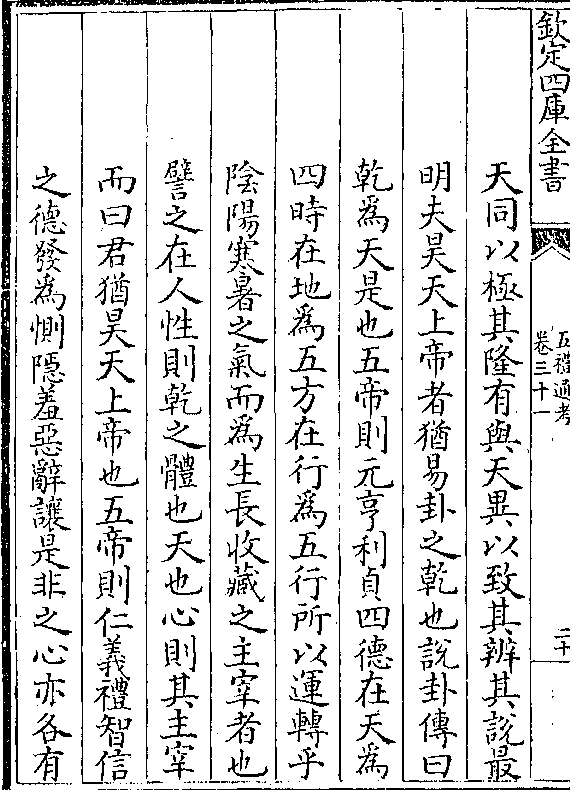 欽定四庫全書
五禮通考
卷三十一
二十
天同以極其隆有與天異以致其辨其說最
明夫昊天上帝者猶易卦之乾也說卦傳曰
乾為天是也五帝則元亨利貞四德在天為
四時在地為五方在行為五行所以運轉乎
陰陽寒暑之氣而為生長收藏之主宰者也
譬之在人性則乾之體也天也心則其主宰
而曰君猶昊天上帝也五帝則仁義禮智信
之德發為惻隠羞惡辭讓是非之心亦各有